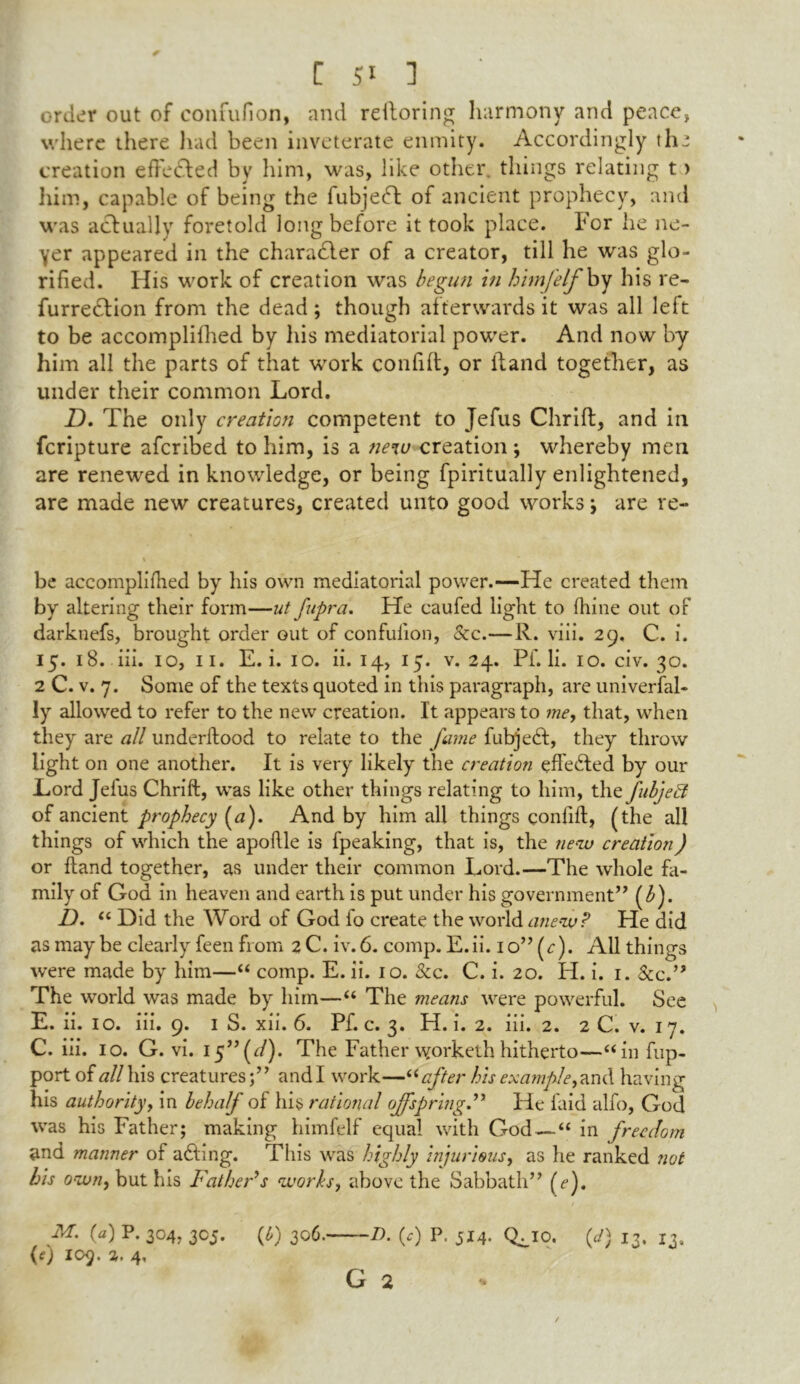 [ 51 ]
order out of confuſion, and reſtoring harmony and peace,
where there had been inveterate enmity. Accordingly the
creation effected by him, was, like other. things relating to
him, capable of being the ſubject of ancient prophecy, and
was actually foretold long before it took place. For he ne-
ver appeared in the character of a creator, till he was glo-
rified. His work of creation was begun in himſelf by his re-
ſurrection from the dead; though afterwards it was all left
to be accompliſhed by his mediatorial power. And now by
him all the parts of that work conſiſt, or ſtand together, as
under their common Lord.
D. The only creation competent to Jeſus Chriſt, and in
ſcripture aſcribed to him, is a new creation; whereby men
are renewed in knowledge, or being ſpiritually enlightened,
are made new creatures, created unto good works; are re-
be accompliſhed by his own mediatorial power.—He created them
by altering their form—ut ſupra. He cauſed light to ſhine out of
darkneſs, brought order out of confuſion, &c.—R. viii. 29. C. i.
15. 18. iii. 10, 11. E. i. 10. ii. 14, 15. v. 24. Pſ. li. 10. civ. 30.
2 C. v. 7. Some of the texts quoted in this paragraph, are univerſal-
ly allowed to refer to the new creation. It appears to me, that, when
they are all underſtood to relate to the ſame ſubject, they throw
light on one another. It is very likely the creation effected by our
Lord Jeſus Chriſt, was like other things relating to him, the ſubject
of ancient prophecy (a). And by him all things conſiſt, (the all
things of which the apoſtle is ſpeaking, that is, the new creation)
or ſtand together, as under their common Lord.—The whole fa-
mily of God in heaven and earth is put under his government” (b).
D. “ Did the Word of God ſo create the world anew? He did
as may be clearly ſeen from 2 C. iv. 6. comp. E. ii. 10” (c). All things
were made by him—“ comp. E. ii. 10. &c. C. i. 20. H. i. 1. &c.”
The world was made by him—“ The means were powerful. See
E. ii. 10. iii. 9. 1 S. xii. 6. Pſ. c. 3. H. i. 2. iii. 2. 2 C. v. 17.
C. iii. 10. G. vi. 15” (d). The Father worketh hitherto—“ in ſup-
port of all his creatures;” and I work—“after his example, and having
his authority, in behalf of his rational offspring.” He ſaid alſo, God
was his Father; making himſelf equal with God—“ in freedom
and manner of acting. This was highly injurious, as he ranked not
his own, but his Father's works, above the Sabbath” (e).
M. (a) P. 304, 305. (b) 306.——D. (c) P. 514. Q. 10. (d) 13. 13.
(e) 109. 2. 4.
G 2